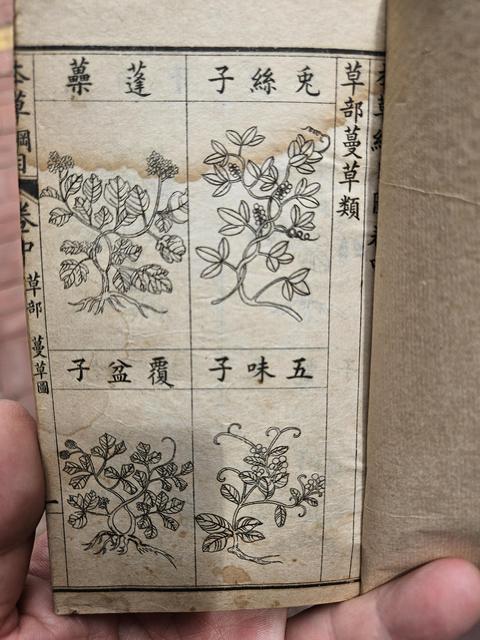 本草
草部蔓草類
兎絲子
蓬蘽
五味子
覆盆子
本草綱目
卷中
草部
蔓草圖
一